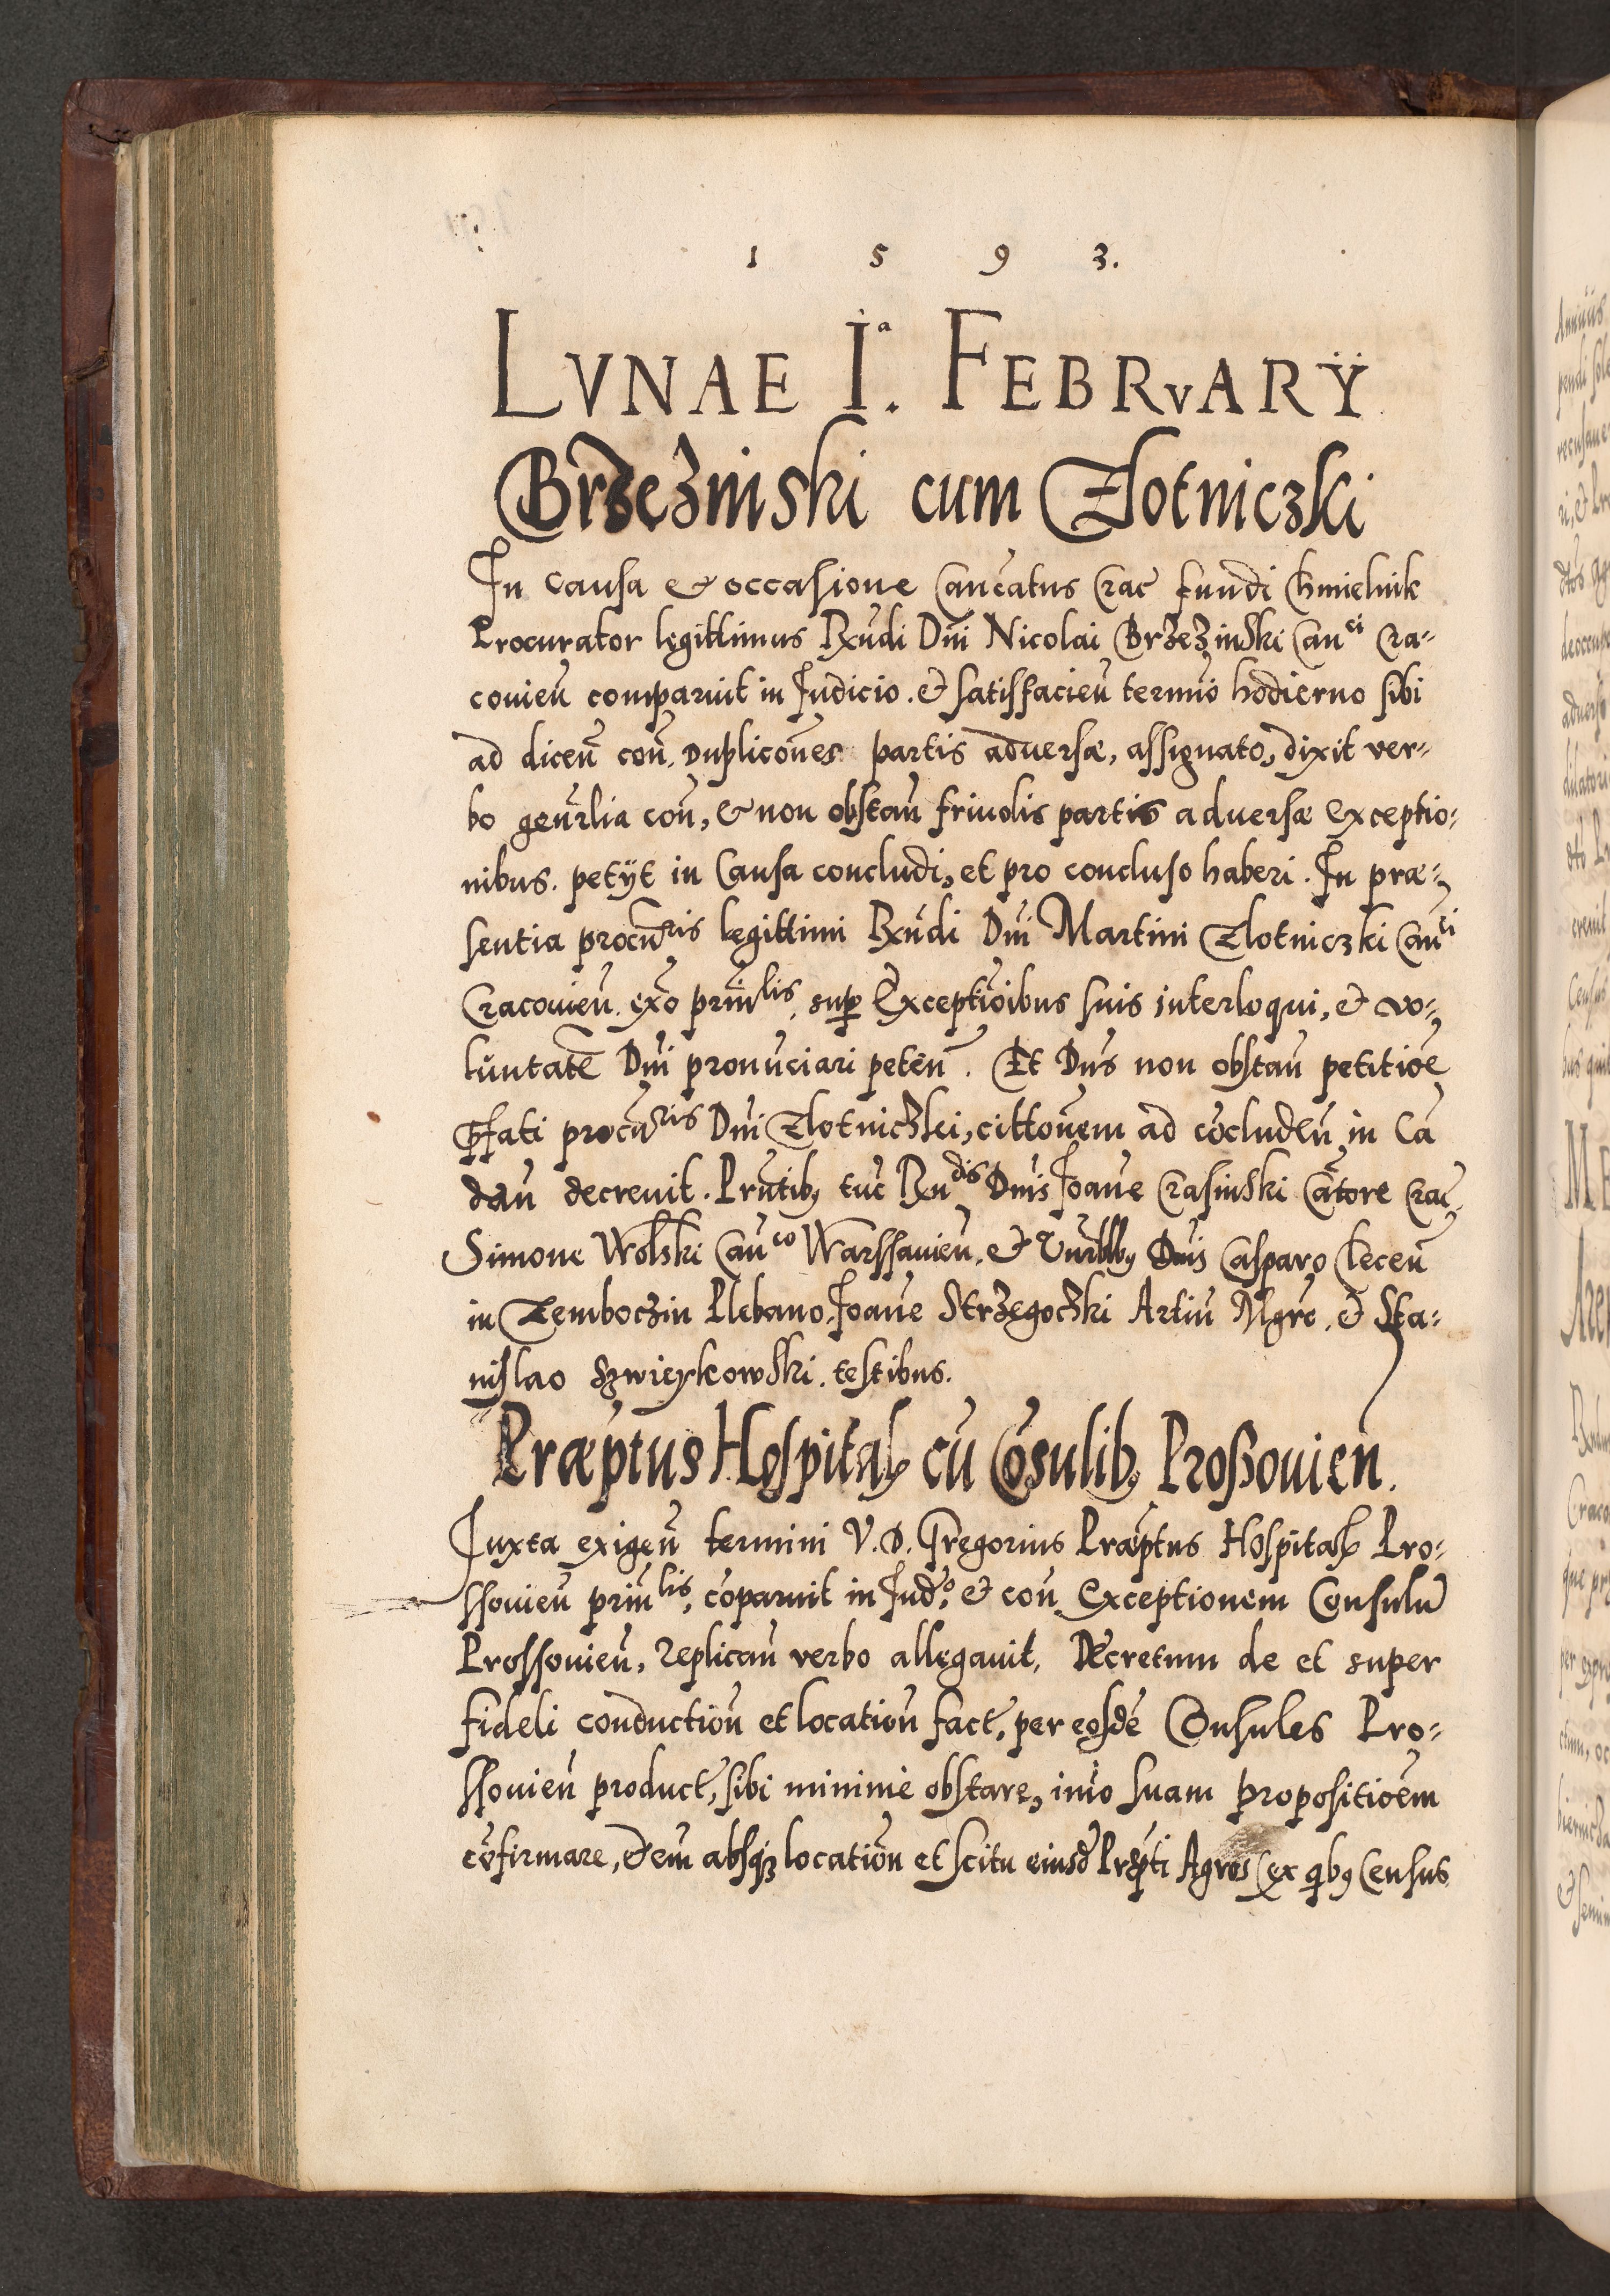 1 5 9 3.
LVNAE Iª. FEBRVARŸ
Brzezinski cum Zlotniczki
In causa & occasione Canc̄atus Crac̄ fundi Chmielnik
Procurator legittimus Rn̄di Dn̄i Nicolai Brzezinski Canci Cra-
couien̄ comparuit in Iudicio. & satisfacien̄ termīo hodierno sibi
ad dicen̄ con̄, duplicōnes partis aduersæ, assignato, dixit ver-
bo genr̄lia con̄, & non obstan̄ friuolis partis aduersæ exceptio-
nibus. petÿt in Causa concludi, et pro concluso haberi. In præ-
sentia procur̄ris legittimi Rn̄di Dn̄i Martini Zlotniczki Canci
Cracouien̄. exō prin̄lis, sup̱ Exceptiōibus suis interloqui, & vo-
luntatē Dn̄i pronūciari petēn̄. Et Dn̄s non obstan̄ petitiōe
p̱fati procur̄ris Dn̄i Zlotniczki, cittōnem ad cōcluden̄ in Cā
dan̄ decreuit. Prn̄tibꝫ tūc Rndis Dn̄is Ioan̄e Crasinski Cātore Crac̄,
Simone Wolski Canco Warssauien̄. & Vnrblbꝫ Dn̄is Casparo Clecen̄
in Zemboczin Plebano, Ioan̄e Strzegoczki Artiū Mgrō. & Sta-
nislao Szwieykowski. testibus.
Præptus Hospitał cū Cōsulibꝫ Proßouien.
Iuxta exigen̄ termini V. D. Gregorius Præptus Hospitał Pro-
ssouien̄ prin̄lis, cōparuit in Iudo, & con̄ Exceptionem Consulū
Prossouien̄, replican̄ verbo allegauit, Decretum de et super
fideli conduction̄ et location̄ fact̄, per eosdē Consules Pro-
ssouien̄ product̄, sibi minime obstare, imō suam propositiōem
cōfirmare, & em̄ absqꝫ location̄ et scitu eiusd̄ Prępti Agros (ex qibꝫ Census